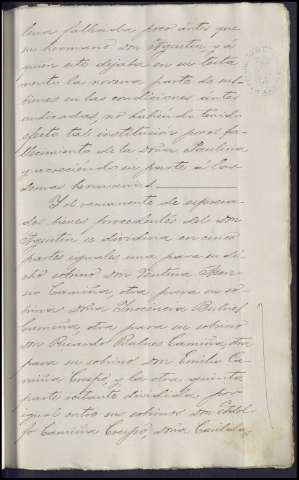 lina fallecida poco ántes que
su hermano don Agustin y á
quien este dejaba en su testa
mento la novena parte de sus
bienes en las condiciones ántes
indicadas, no habiendo tenido
efecto tal institucion por el fa-
llecimiento de la doña Paulina
y acreciendo su parte á los
demas hermanos.
Y el remanente de espresa-
dos bienes procedentes del don
Agustin se dividiria en cinco
partes iguales una para su di-
cho sobrino don Ventura
Camiña, otra para su so-
brina doña Inocencia Rubres
Camiña, otra para su sobrino
don Ricardo Rubres Camiña, otra
para su sobrino don Emilio Ca-
miña Crespo, y la otra quinta
parte restante dividida por
igual entre sus sobrinos don Adol-
fo Camiña Crespo, doña Cándida